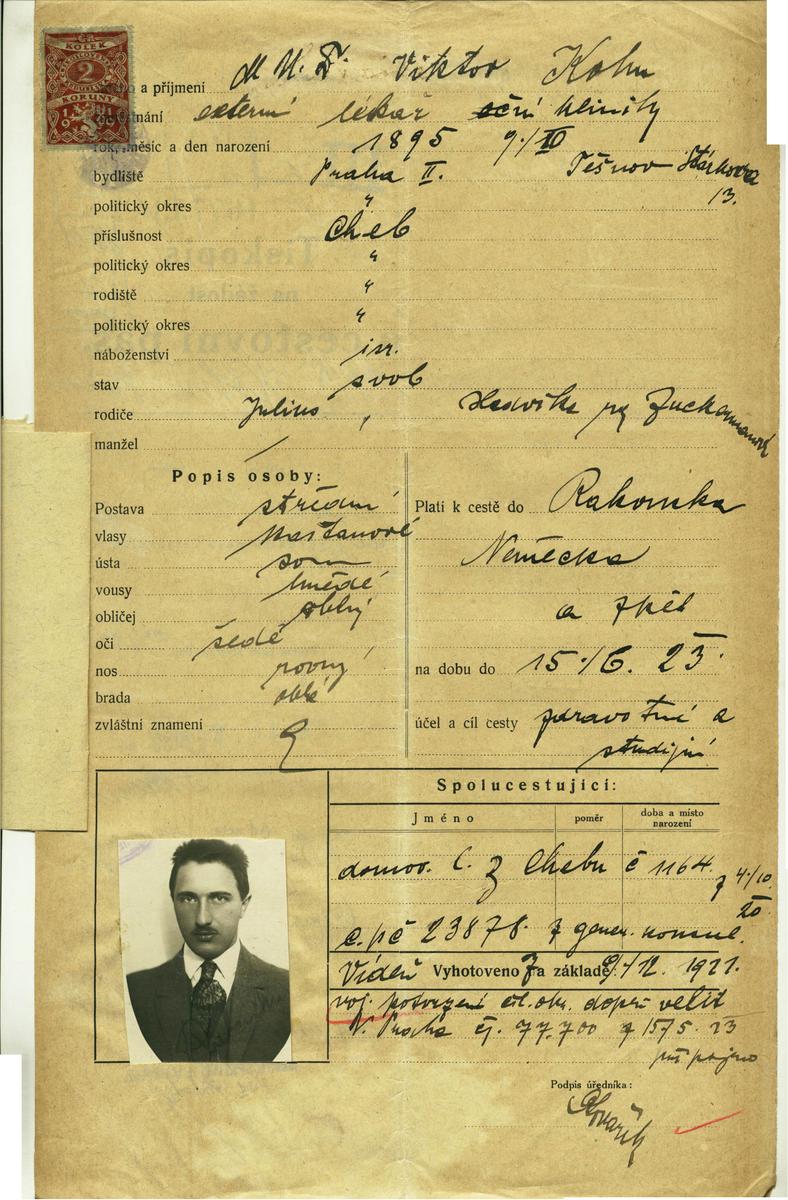 KOLEK
2
KORUNY
a příjmení MUDr. Viktor Kohn
externí lékař oční kliniky
rok, měsíc a den narození 1895 9./III
bydliště Praha II. Těšnov Stárkova
13.
politický okres "
příslušnost Cheb
politický okres "
rodiště "
politický okres "
náboženství isr.
stav svob
rodiče Julius, Hedvika
manžel /
Popis osoby:
Postava střední
vlasy kaštanové
ústa soum
vousy hnědé
obličej oblý
oči šedé
nos rovný
brada oblá
zvláštní znamení
Platí k cestě do Rakouska
Německa
a zpět
na dobu do 15./6. 23.
účel a cíl cesty zdravotní a
studijní
Spolucestující:
Jméno poměr doba a místo
narození
domov. l. z Chebu č 1164. z 4./10.
20.
c.p č 23878. z gener. konsul.
Vídeň Vyhotoveno na základě 9./12. 1921.
voj. potvrzení dopl. velit
V. Praha čj. 77.700 z 15/5. 23
Podpis úředníka: